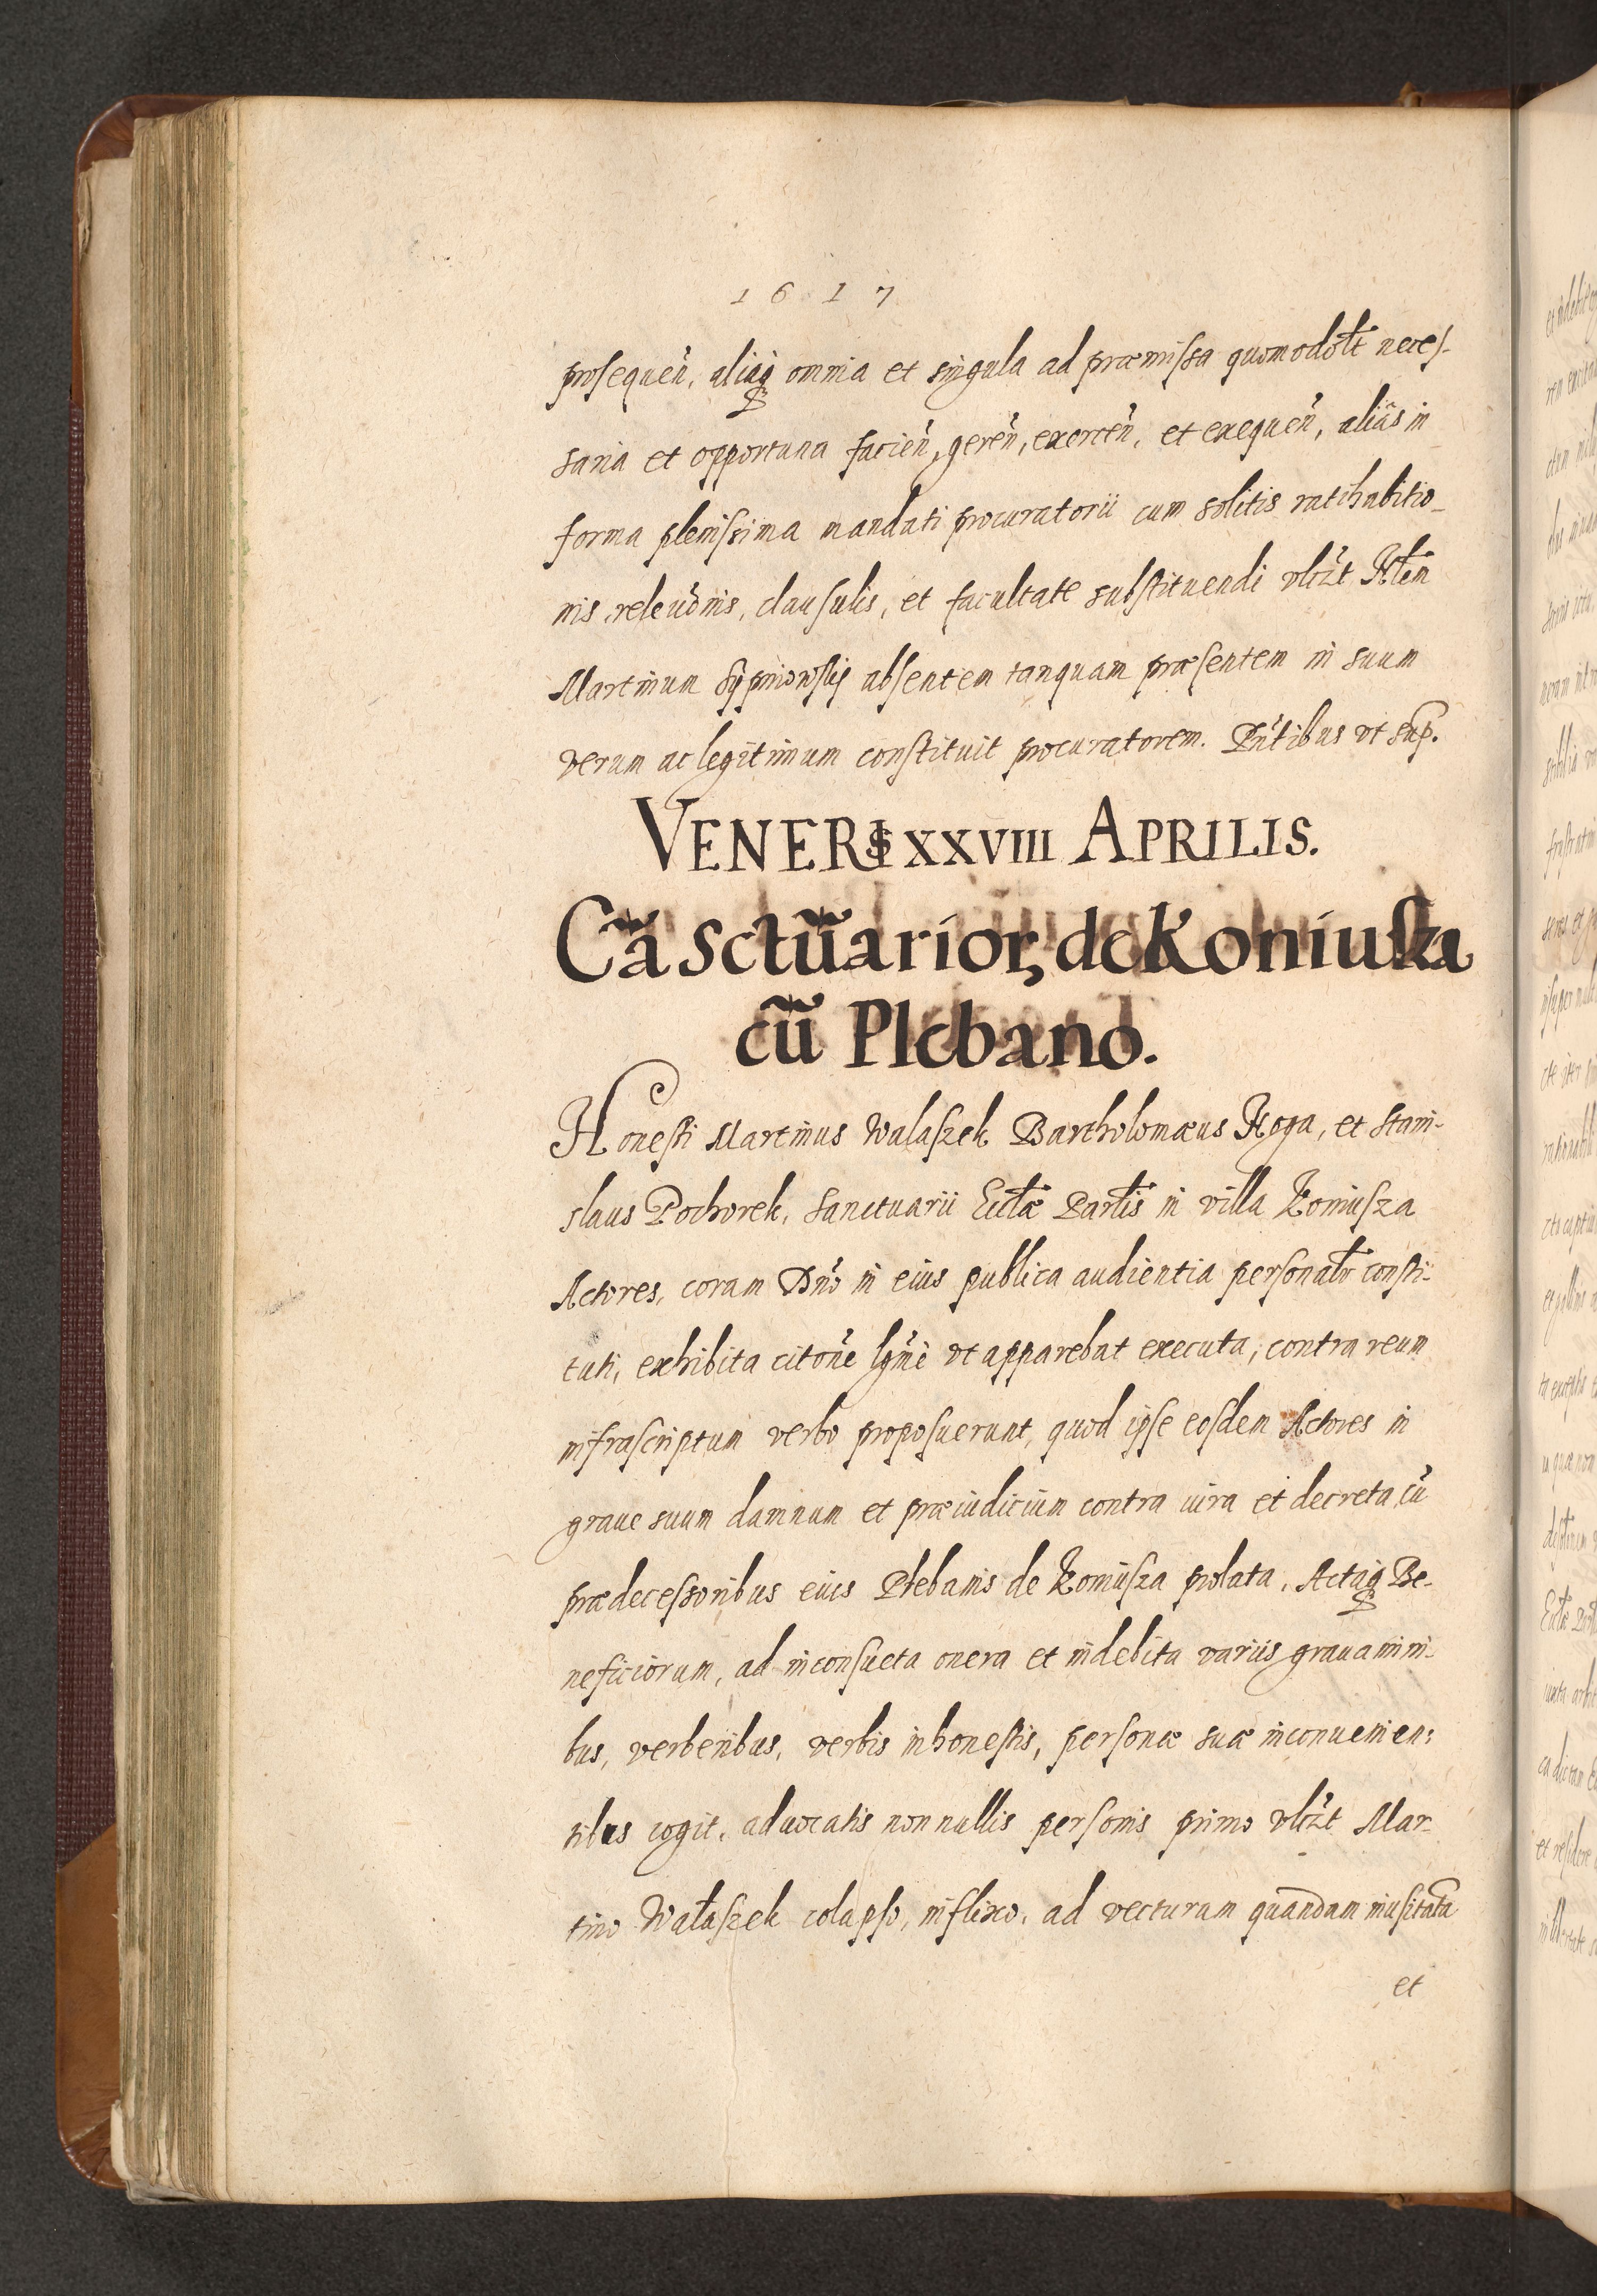 1617
prosequeñ, aliaq₃ omnia et singula ad præmissa quomodolt neces-
saria et opportuna facieñ, gereñ, exerceñ, et exequeñ, aliàs in
forma plenissima mandati procuratorii cum solitis ratihabitio-
nis, releuõnis, clausulis, et facultate substituendi vlczt
Martinum absentem tanquam præsentem in suum
verum ac legitimum constituit procuratorem. Pñtibus vt sup.
VENERIS XXVIII APRILIS.
Cã Sctũarior, de Koniusza
cũ Plebano.
Honesti Martinus Walaszek Bartholomæus Koga, et Stani-
slaus Pochorek, Sanctuarii Ecclæ Parlis in villa Koniusza
Actores, coram Dño in eius publica audientia personalr consti-
tuti, exhibita citoñe lgme vt apparebat executa, contra reum
infrascriptum verbo proposuerunt, quod ipse eosdem Actores in
graue suum damnum et præiudicium contra iura et decreta, cũ
prædecessoribus eius Plebanis de Koniusza prolata, Actaq₃ Be-
neficiorum, ad inconsueta onera et indebita variis grauamini-
bus, verberibus, verbis inhonestis, personæ suæ inconuenien-
tibus cogit, aduocatis nonnullis personis primo vlczt Mar-
tino Wałaszek colapso, inflixo, ad vecturam quandam inusitatã
et